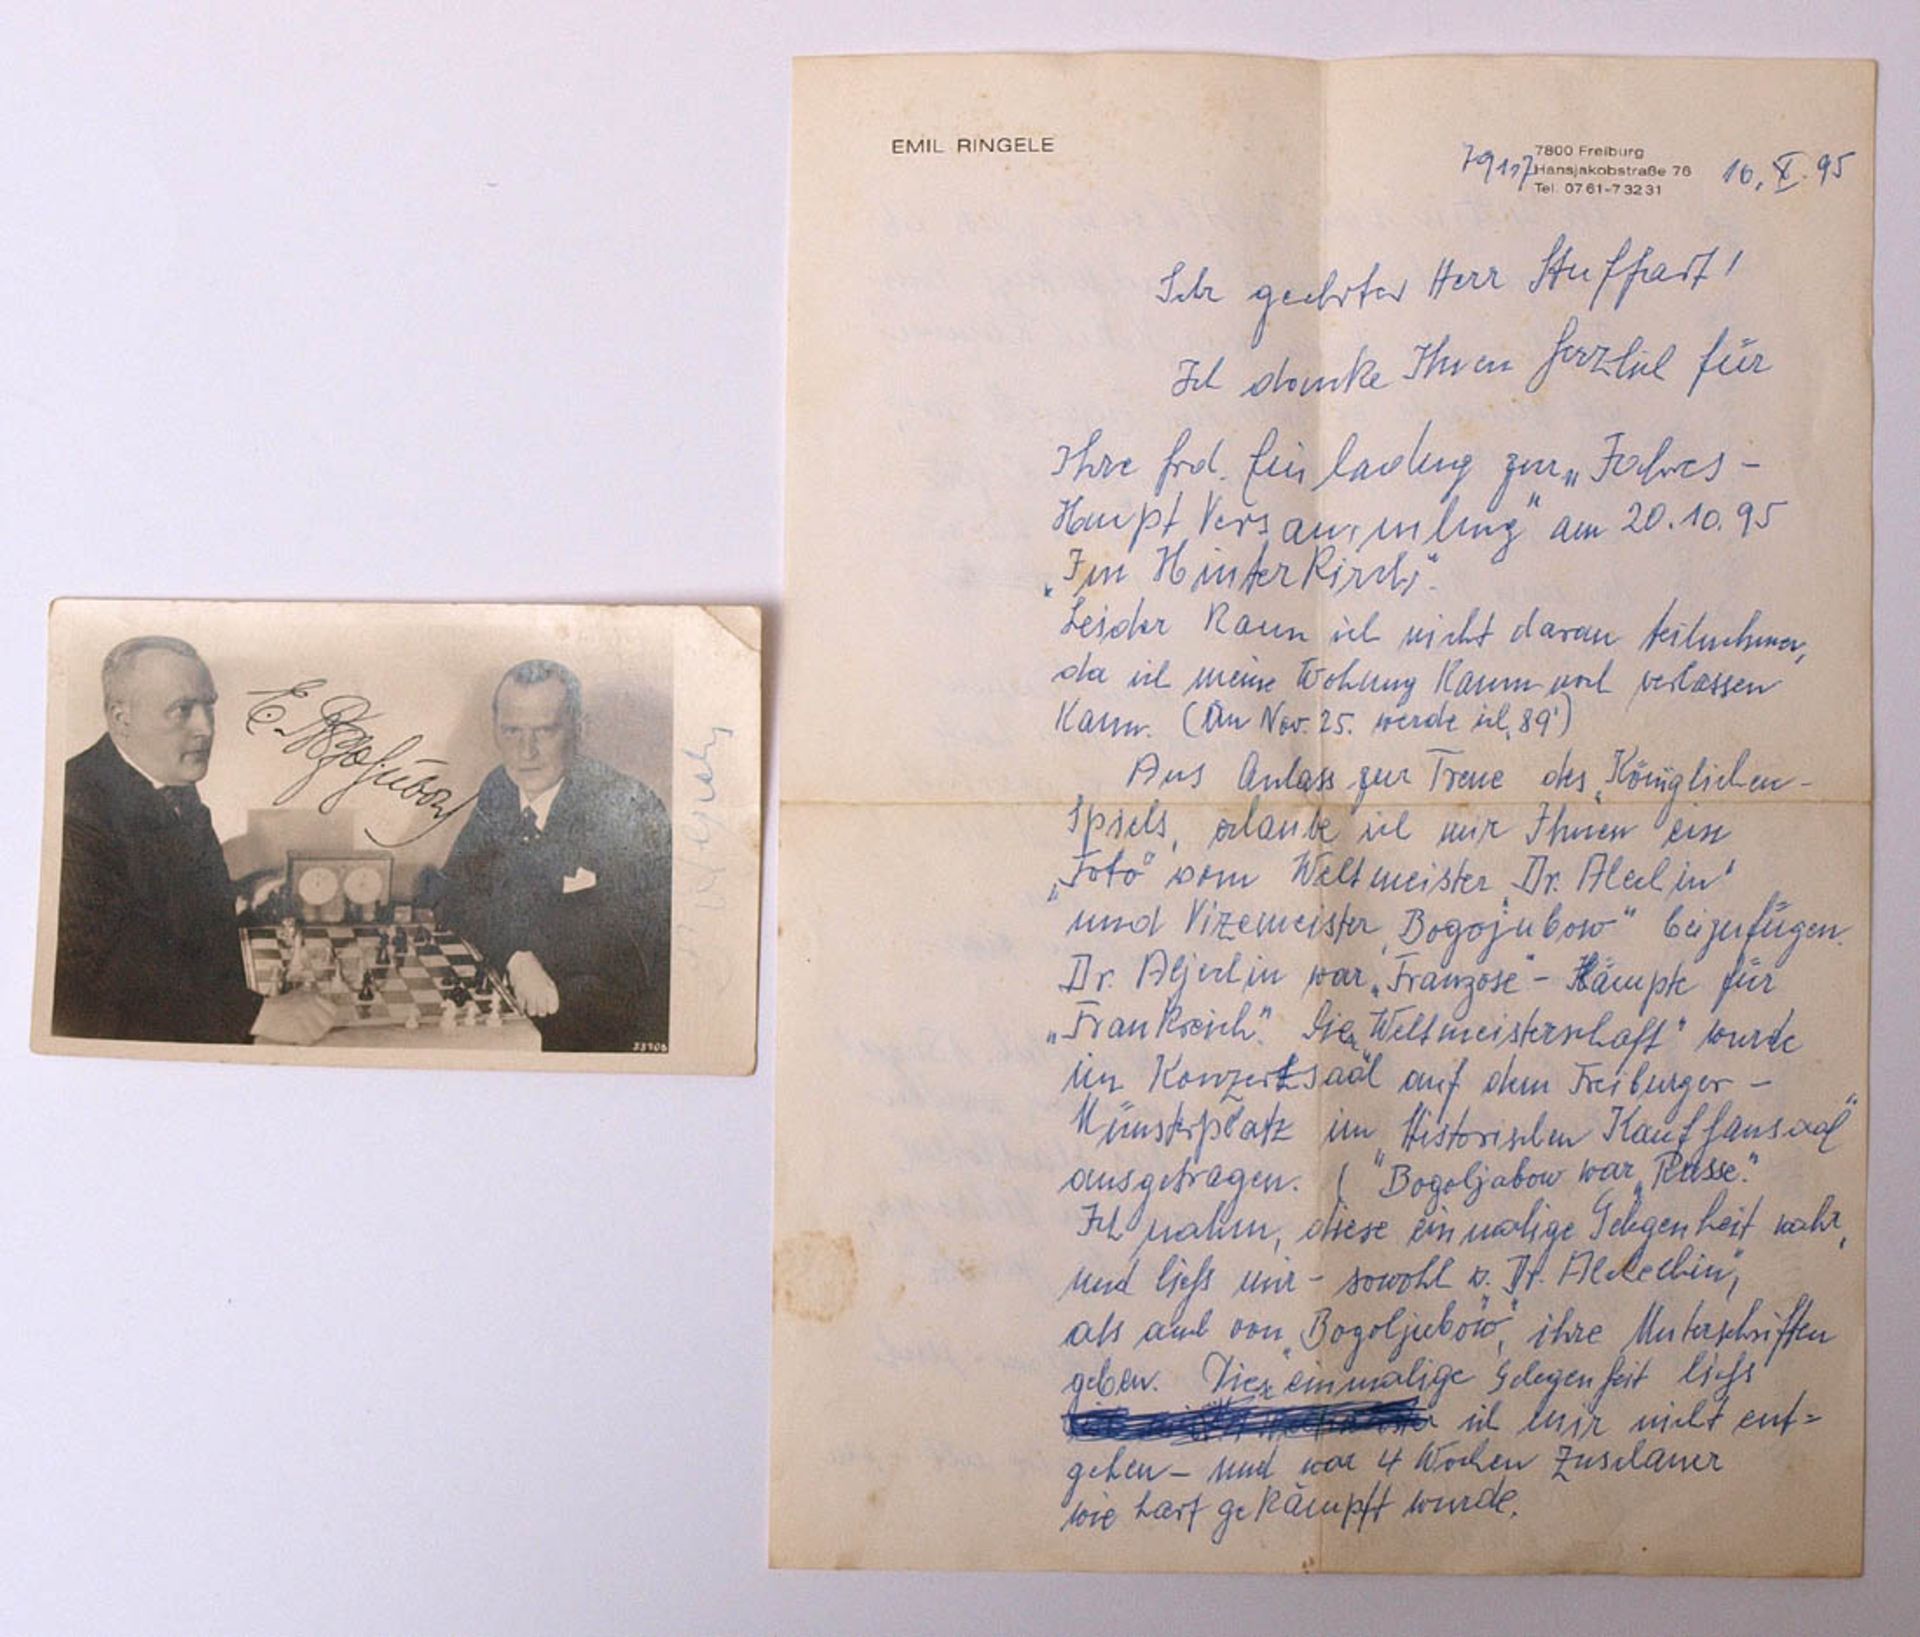 EMIL RINGELE
7800 Freiburg
79117 Hansjakobstraße 76
Tel. 0761-73231
10. X. 95
Sehr geehrter Herr Stuffart!
Ich danke Ihnen herzlich für
Ihre frd. Einladung zur „Jahres-
Haupt Versammlung" am 20.10.95
„Im Hinterkirch".
Leider kann ich nicht daran teilnehmen,
da ich meine Wohnung kaum noch verlassen
kann. (Im Nov. 25. werde ich 89')
Aus Anlass zur Treue des „Königlichen-
Spiels, erlaube ich mir Ihnen ein
„Foto" vom Weltmeister „Dr. Alechin"
und Vizemeister „Bogojubow" beizufügen.
Dr. Aljechin war „Franzose" - Kämpfte für
„Frankreich". Die „Weltmeisterschaft" wurde
im Konzertsaal auf dem Freiburger -
Münsterplatz im "Historischen Kaufhaussaal"
ausgetragen. ( "Bogoljabow war „Russe".
Ich nahm, diese einmalige Gelegenheit wahr,
und liess mir - sowohl v. „Dr. Aleckchin",
als auch von „Bogoljubow", ihre Unterschriften
geben. Diese einmalige Gelegenheit liess
ich mir nicht ent=
gehen - und war 4 Wochen Zuschauer
wie hart gekämpft wurde.
E. Bogoljubow